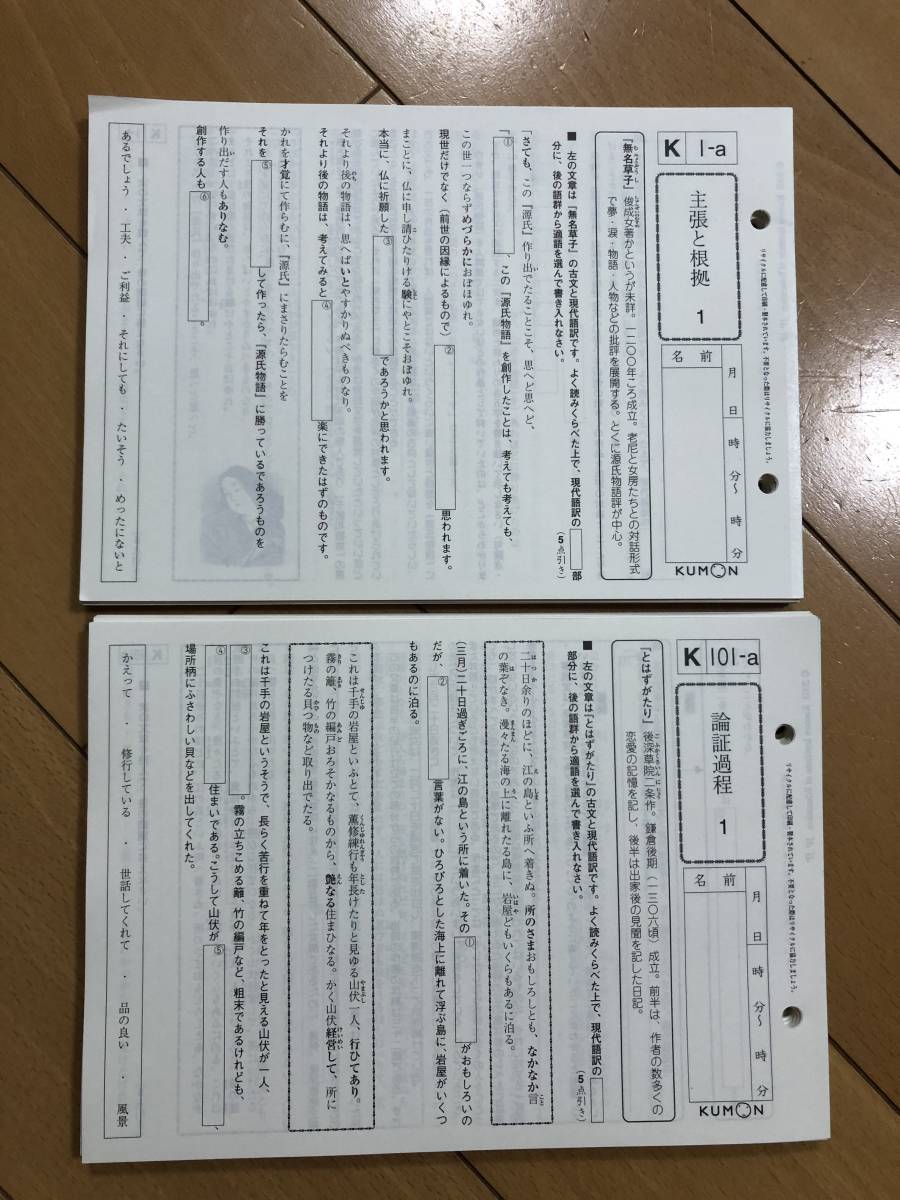 K 1-a
主張と根拠 1
名前
月 日
時 分〜 時 分
KUMON
リサイクルに配慮して印刷・製本されています。不要となった際はリサイクルに協力しましょう。
『無名草子』 俊成女著かというが未詳。一二〇〇年ころ成立。老尼と女房たちとの対話形式
で夢・涙・物語・人物などの批評を展開する。とくに源氏物語評が中心。
■ 左の文章は『無名草子』の古文と現代語訳です。よく読みくらべた上で、現代語訳の 部
分に、後の語群から適語を選んで書き入れなさい。 (5点引き)
「さても、この『源氏』作り出でたることこそ、思へど思へど、
「① 、この『源氏物語』を創作したことは、考えても考えても、
この世一つならずめづらかにおぼほゆれ。
現世だけでなく(前世の因縁によるもので) ② 思われます。
まことに、仏に申し請ひたりける験にやとこそおぼゆれ。
本当に、仏に祈願した ③ であろうかと思われます。
それより後の物語は、思へばいとやすかりぬべきものなり。
それより後の物語は、考えてみると ④ 楽にできたはずのものです。
かれを才覚にて作らむに、『源氏』にまさりたらむことを
それを ⑤ して作ったら、『源氏物語』に勝っているであろうものを
作り出だす人もありなむ。
創作する人も ⑥ 。
あるでしょう ・ 工夫 ・ ご利益 ・ それにしても ・ たいそう ・ めったにないと
K 101-a
論証過程 1
名前
月 日
時 分〜 時 分
KUMON
リサイクルに配慮して印刷・製本されています。不要となった際はリサイクルに協力しましょう。
『とはずがたり』 後深草院二条作。鎌倉後期(一三〇六頃)成立。前半は、作者の数多くの
恋愛の記憶を記し、後半は出家後の見聞を記した日記。
■ 左の文章は『とはずがたり』の古文と現代語訳です。よく読みくらべた上で、現代語訳の
部分に、後の語群から適語を選んで書き入れなさい。 (5点引き)
二十日余りのほどに、江の島といふ所へ着きぬ。所のさまおもしろしとも、なかなか言
の葉ぞなき。漫々たる海の上に離れたる島に、岩屋どもいくらもあるに泊る。
(三月)二十日過ぎごろに、江の島という所に着いた。その ① がおもしろいの
だが、 ② 言葉がない。ひろびろとした海上に離れて浮ぶ島に、岩屋がいくつ
もあるのに泊る。
これは千手の岩屋といふとて、薫修練行も年長けたりと見ゆる山伏一人、行ひてあり。
霧の籬、竹の編戸おろそかなるものから、艶なる住まひなる。かく山伏経営して、所に
つけたる貝つ物など取り出でたる。
これは千手の岩屋というそうで、長らく苦行を重ねて年をとったと見える山伏が一人、
③ 。霧の立ちこめる籬、竹の編戸など、粗末であるけれども、
④ 住まいである。こうして山伏が ⑤ 、
場所柄にふさわしい貝などを出してくれた。
かえって ・ 修行している ・ 世話してくれて ・ 品の良い ・ 風景